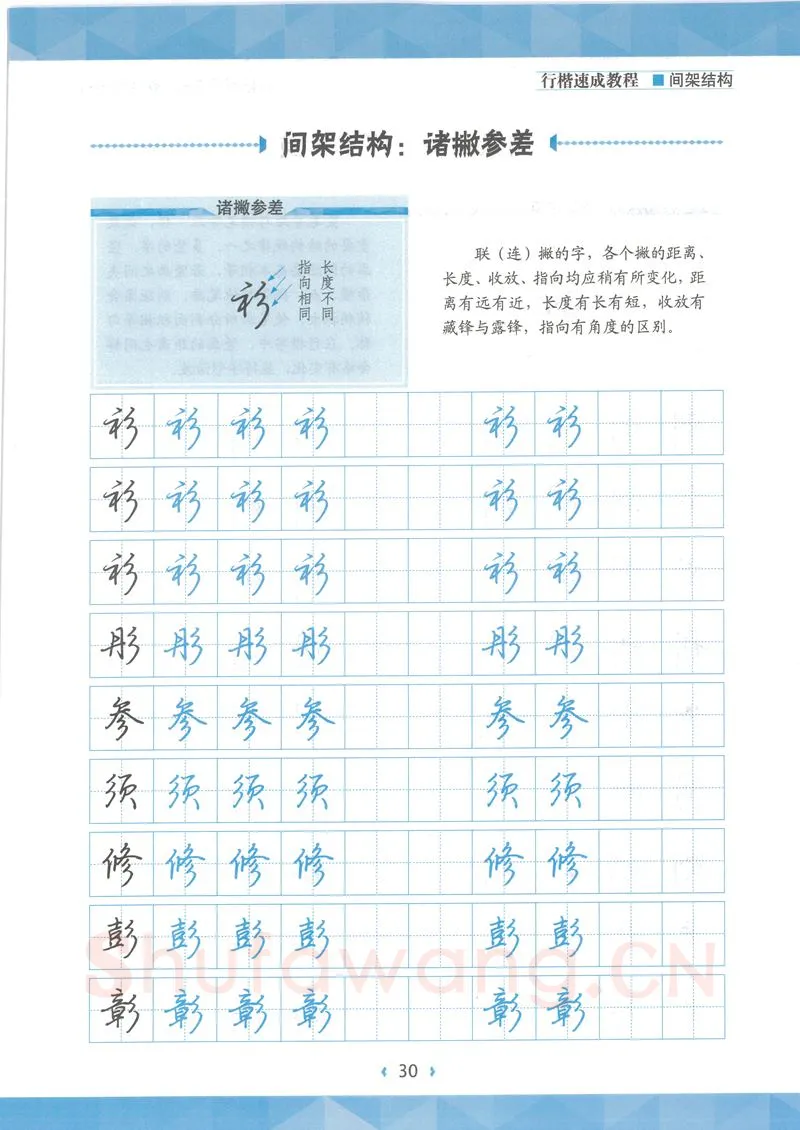 行楷速成教程 ■ 间架结构
间架结构：诸撇参差
诸撇参差
长度不同
指向相同
衫
联（连）撇的字，各个撇的距离、
长度、收放、指向均应稍有所变化，距
离有远有近，长度有长有短，收放有
藏锋与露锋，指向有角度的区别。
衫 衫 衫 衫 衫 衫
衫 衫 衫 衫 衫 衫
衫 衫 衫 衫 衫 衫
彤 彤 彤 彤 彤 彤
参 参 参 参 参 参
须 须 须 须 须 须
修 修 修 修 修 修
彭 彭 彭 彭 彭 彭
Shufawang.CN
彰 彰 彰 彰 彰 彰
30